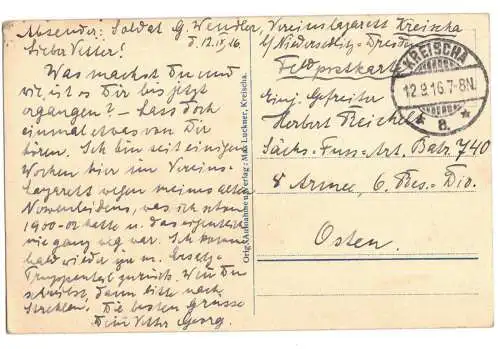 Absender: Soldat G. Wendler, Vereinslazarett Kreischa
b/Niedersedlitz-Dresden
d. 12.IX.16
Lieber Vetter!
Was machst Du und
wie ist es Dir bis jetzt
ergangen? – Lass doch
einmal etwas von Dir
hören. Ich bin seit einigen
Wochen hier im Vereins-
lazarett wegen meines alten
Nervenleidens, was ich schon
1900-02 hatte u. das eigentlich
nie ganz weg war. Ich komme
bald wieder zu m. Ersatz-
Truppenteil zurück. Wenn Du
schreibst, dann bitte nach
Strehlen. Die besten Grüsse
Dein Vetter Georg.
Orig.-Aufnahme u. Verlag: Max Luckner, Kreischa.
KREISCHA
12.9.16.7-8N.
* 8. *
Feldpostkarte
Einj. Gefreiter
Herbert Reichelt
Sächs. Fuss-Art. Batr. 740
8 Armee, 6. Res.-Div.
Osten.